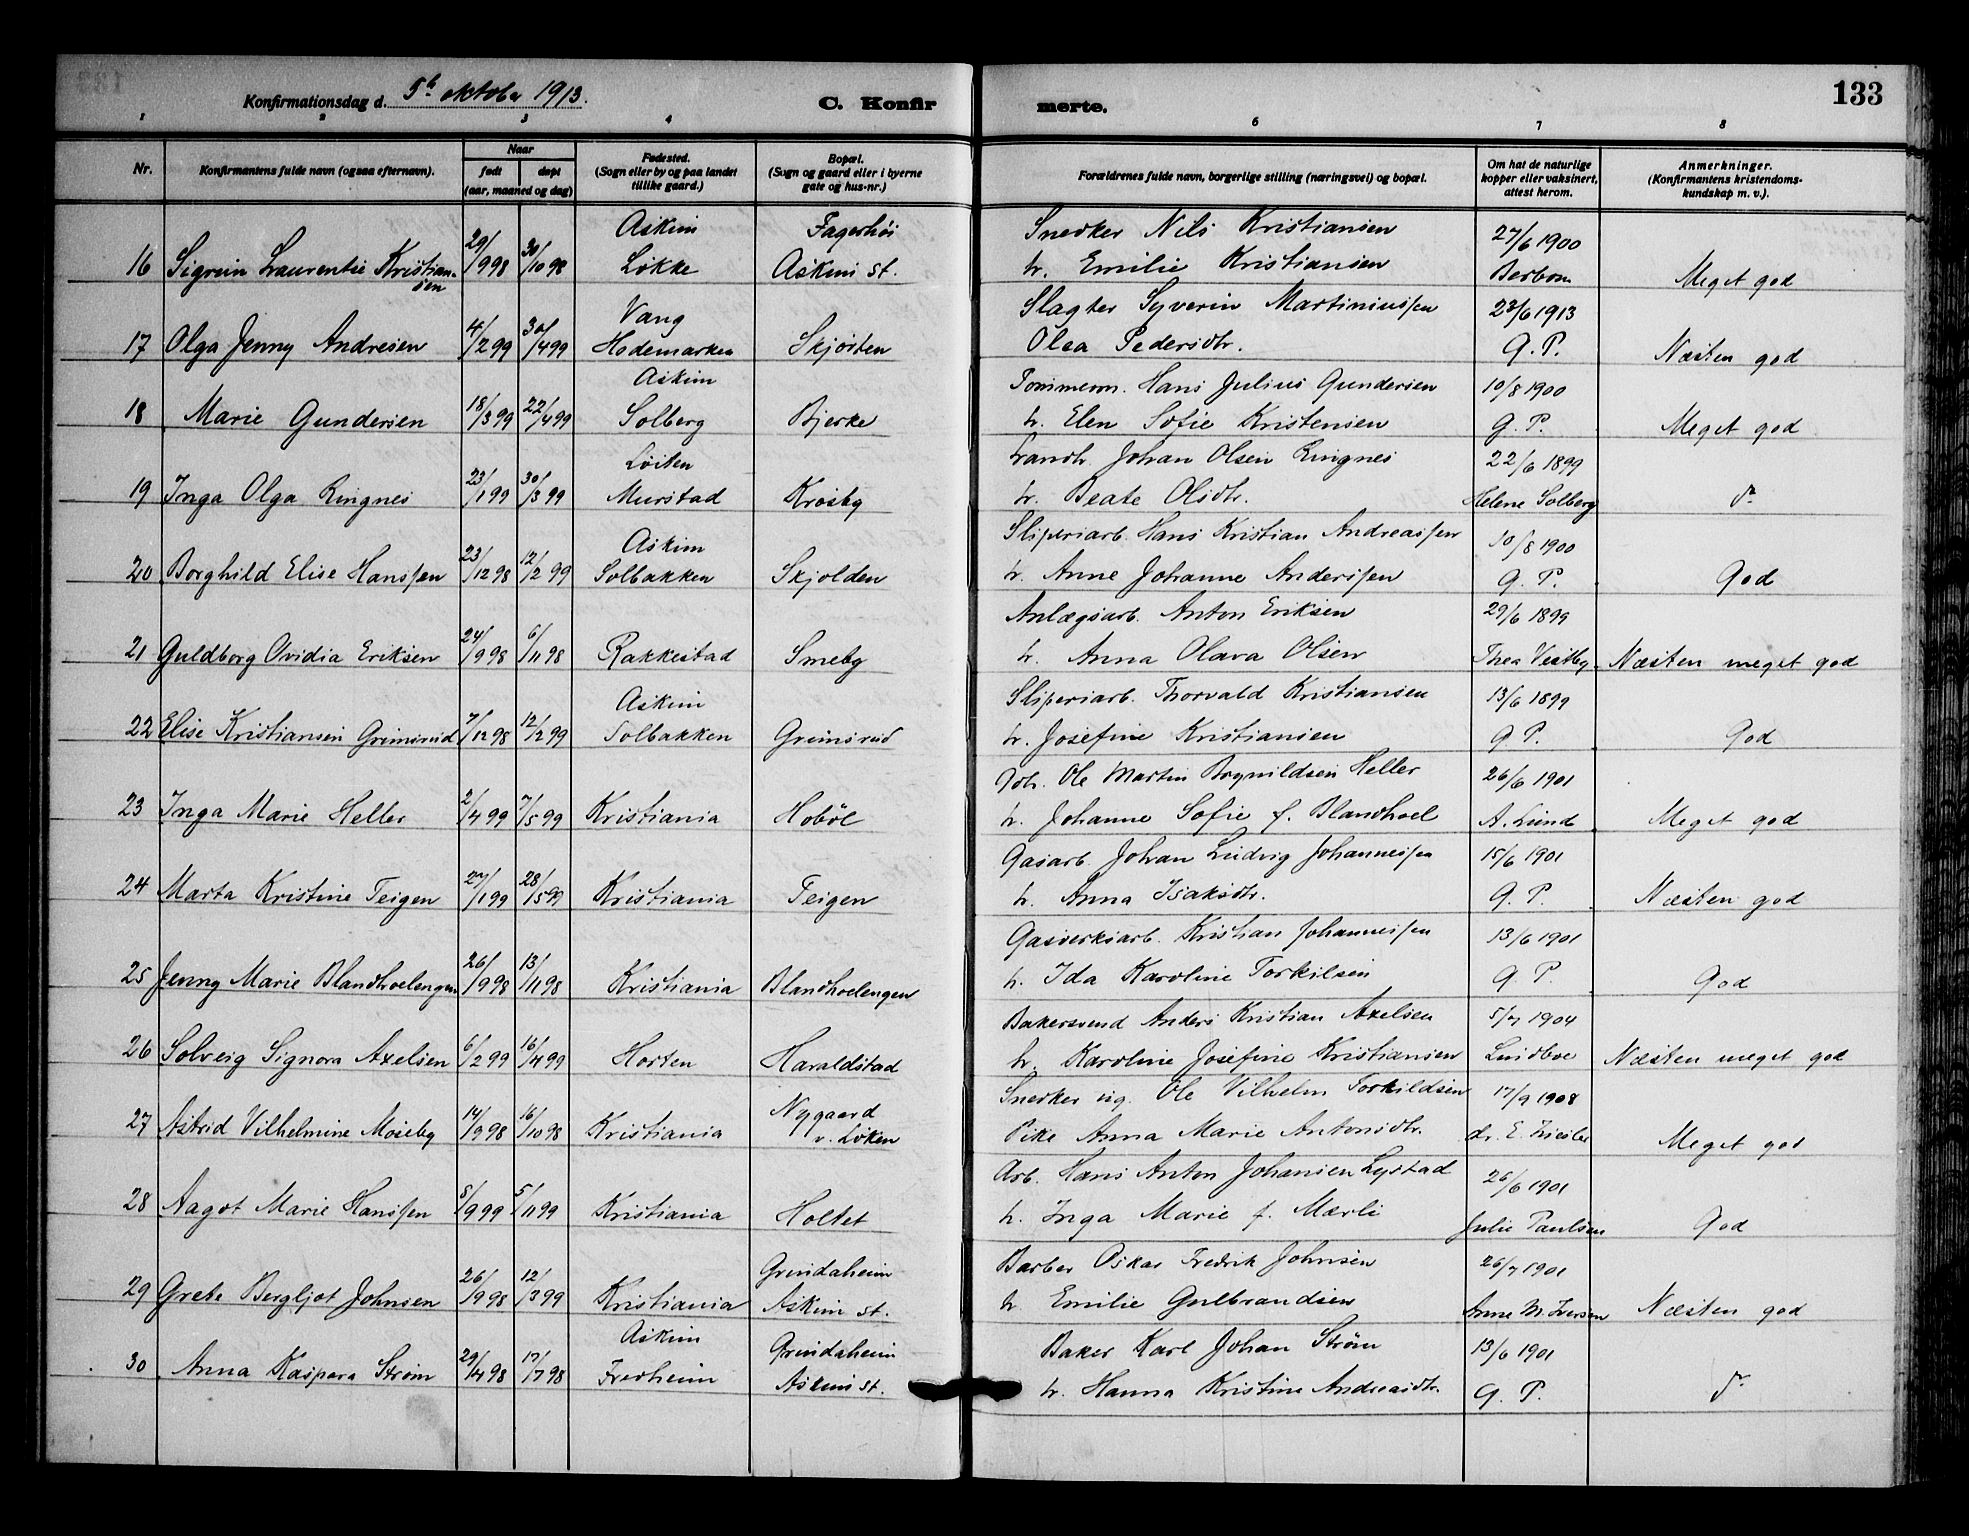 133
Konfirmationsdag d. 5te oktober 1913.
C. Konfirmerte.
1 2 3 4 6 7 8
Nr. Konfirmantens fulde navn (ogsaa efternavn). Naar født døpt (aar, maaned og dag) Fødested. (Sogn eller by og paa landet tillike gaard.) Bopæl. (Sogn og gaard eller i byerne gate og hus-nr.) Forældrenes fulde navn, borgerlige stilling (næringsvei) og bopæl. Om hat de naturlige kopper eller vaksinert, attest herom. Anmerkninger. (Konfirmantens kristendomskundskap m. v.).
Askim Fagerhøi Snedker Nils Kristiansen 27/6 1900
16 Sigrun Laurentie Kristiansen 29/9 98 30/10 98 Løkke Askim st. h. Emilie Kristiansen Berbom Meget god
Vang Slagter Syverin Martiniussen 23/6 1913
17 Olga Jenny Andresen 4/2 99 30/4 99 Hedemarken Skjørten Olea Pedersdtr. G. P. Næsten god
Askim Tømmerm. Hans Julius Gundersen 10/8 1900
18 Marie Gundersen 18/3 99 22/4 99 Solberg Bjerke h. Elen Sofie Kristensen G. P. Meget god
Løiten Landh. Johan Olsen Ringnes 22/6 1899
19 Inga Olga Ringnes 23/1 99 30/3 99 Murstad Krosby h. Beate Olsdtr. Helene Solberg do
Askim Sliperiarb. Hans Kristian Andreassen 10/8 1900
20 Borghild Elise Hanssen 23/12 98 12/2 99 Solbakken Skjolden h. Anne Johanne Anderssen G. P. God
Anlægsarb. Anton Eriksen 29/6 1899
21 Guldborg Ovidia Eriksen 24/9 98 6/11 98 Rakkestad Smeby h. Anna Olava Olsen Thea Vestby Næsten meget god
Askim Sliperiarb. Thorvald Kristiansen 13/6 1899
22 Elise Kristiansen Grimsrud 7/12 98 12/2 99 Solbakken Grimsrud h. Josefine Kristiansen G. P. God
Ole Martin Brynildsen Heller 26/6 1901
23 Inga Marie Heller 2/4 99 7/5 99 Kristiania Hobøl h. Johanne Sofie f. Blandhoel A. Lund Meget god
Gasarb. Johan Ludvig Johannessen 15/6 1901
24 Marta Kristine Teigen 27/1 99 28/5 99 Kristiania Teigen h. Anna Isaksdtr. G. P. Næsten god
Gasverksarb. Kristian Johannessen 13/6 1901
25 Jenny Marie Blandhoelengen 26/9 98 13/11 98 Kristiania Blandhoelengen h. Ida Karoline Torkilsen G. P. God
Bakersvend Anders Kristian Axelsen 5/7 1904
26 Solveig Signora Axelsen 6/2 99 16/4 99 Horten Haraldstad h. Karoline Josefine Kristiansen Lindboe Næsten meget god
Nygaard Snedker ug. Ole Vilhelm Torkildsen 17/9 1908
27 Astrid Vilhelmine Moseby 14/9 98 16/10 98 Kristiania v. Løken Pike Anna Marie Antonsdtr. dr. E. Meget god
Arb. Hans Anton Johansen Lystad 26/6 1901
28 Aagot Marie Hanssen 5/9 99 5/11 99 Kristiania Holtet h. Inga Marie f. Mærli Julie Paulsen God
Grindaheim Barber Oskar Fredrik Johnsen 26/7 1901
29 Grete Bergljot Johnsen 26/9 98 12/3 99 Kristiania Askim st. h. Emilie Gulbrandsen Anne M. Iversen Næsten god
Askim Grindaheim Baker Karl Johan Strøm 13/6 1901
30 Anna Kaspara Strøm 29/4 98 17/7 98 Fredheim Askim st. h. Hanna Kristine Andreasdtr. G. P. do